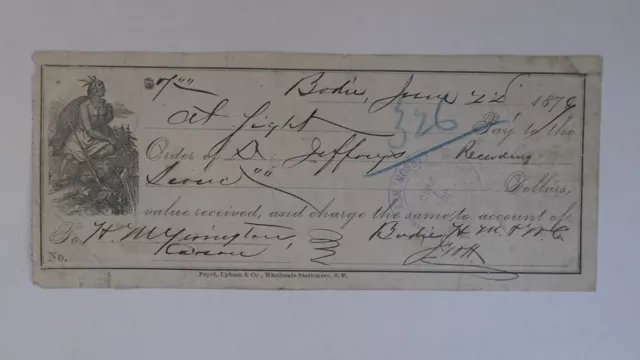 $7"" Bodie, June 22d 1879
At Sight Pay to the
326
Order of D. Jeffreys Recording
Seven "" Dollars,
value received, and charge the same to account of
To H. M Yerington, Bodie
Carson
No.
Payot, Upham & Co., Wholesale Stationers, S.F.